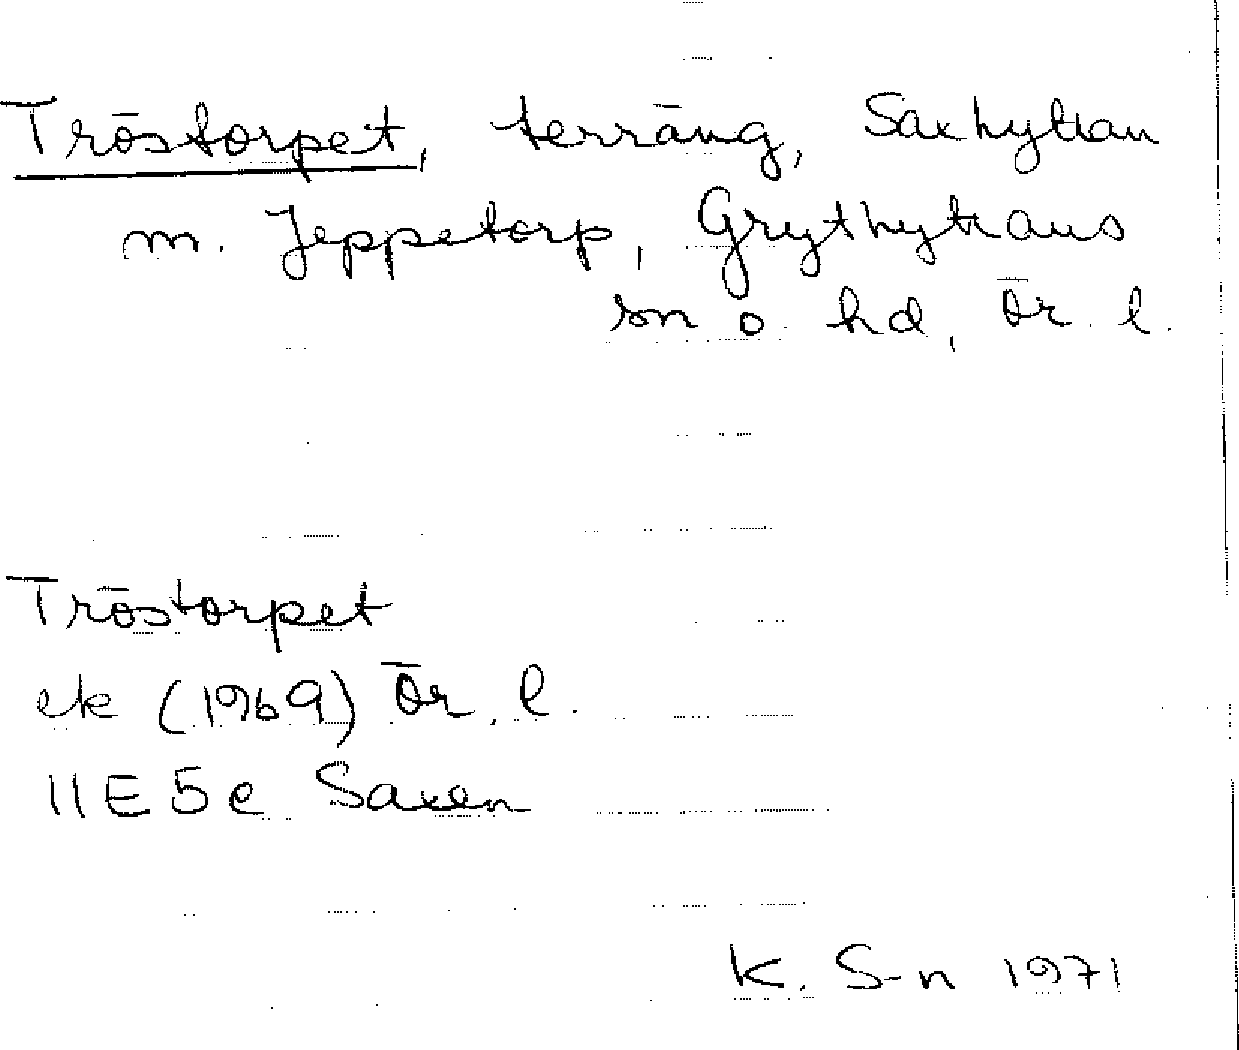 Tröstorpet, terräng, Saxhyttan
m. Jeppetorp, Grythyttans
sn o. hd, Ör. l.
Tröstorpet
ek (1969) Ör. l.
11E5e Saxen
K. S-n 1971